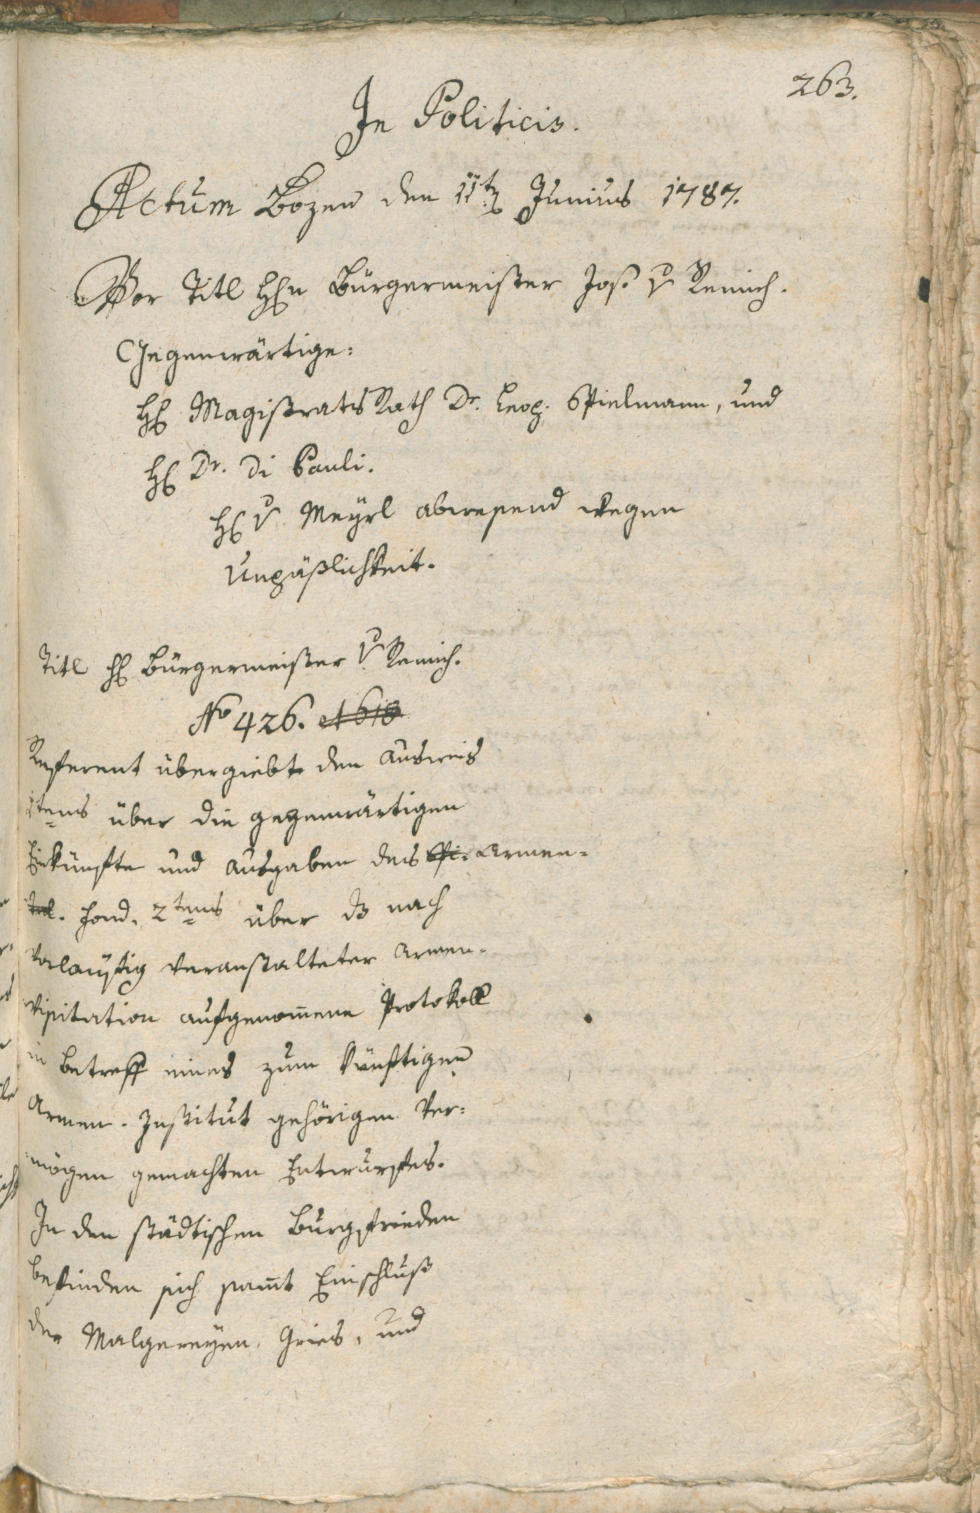 263.
In Politicis.
Actum Bozen den 11t Junius 1787.
Vor Titl Hhn Bürgermeister Jos: v Remich.
Gegenwärtige:
Hh Magistrats Rath Dr. Leop. Spielmann, und
Hh Dr. Di Pauli.
Hh v Meyrl abwesend wegen
Unpäßlichkeit.
Titl Hh Bürgermeister v Remich.
No 426.
Referent übergiebt den Ausweis
1tens über die gegenwärtigen
Einkünfte und Ausgaben des Armen-
fond. 2tens über das nach
vorläufig veranstalteter Armen-
visitation aufgenom̄ene Protokoll
in betreff eines zum künftigen
Armen-Institut gehörigen Ver-
mögen gemachten Entwurfes.
In den städtischen Burgfrieden
befinden sich sam̄t Einschluß
der Malgereyen, Gries, und